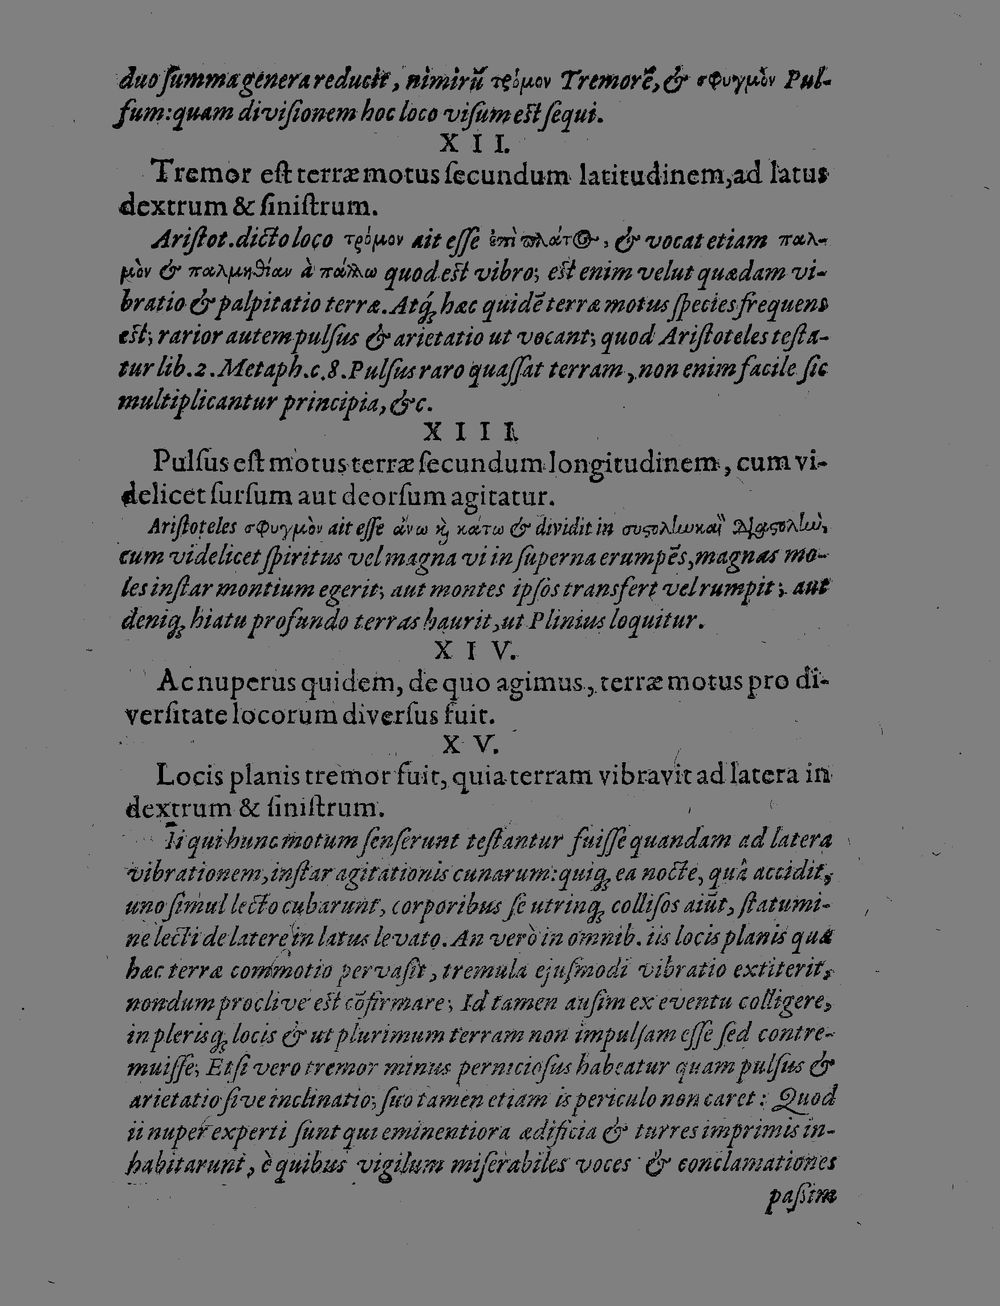 duo ſumma genera reducit, nimirū τρόμον Tremorē, & σφυγμὸν Pul-
ſum: quam diviſionem hoc loco viſum eſt ſequi.
X I I.
Tremor eſt terræ motus ſecundum latitudinem, ad latus
dextrum & ſiniſtrum.
Ariſtot. dicto loco τρόμον ait eſſe ἐπὶ πλάτος, & vocat etiam παλ-
μὸν & παλμηθίαν à πάλλω quod eſt vibro; eſt enim velut quædam vi-
bratio & palpitatio terræ. Atq; hæc quidē terræ motus ſpecies frequens
eſt; rarior autem pulſus & arietatio ut vocant; quod Ariſtoteles teſta-
tur lib. 2. Metaph. c. 8. Pulſus raro quaſſat terram, non enim facile ſic
multiplicantur principia, &c.
X I I I.
Pulſus eſt motus terræ ſecundum longitudinem, cum vi-
delicet ſurſum aut deorſum agitatur.
Ariſtoteles σφυγμὸν ait eſſe ἄνω ϗ κάτω & dividit in
cum videlicet ſpiritus vel magna vi in ſuperna erumpēs, magnas mo-
les inſtar montium egerit; aut montes ipſos transfert vel rumpit; aut
deniq; hiatu profundo terras haurit, ut Plinius loquitur.
X I V.
Ac nuperus quidem, de quo agimus, terræ motus pro di-
verſitate locorum diverſus fuit.
X V.
Locis planis tremor fuit, quia terram vibravit ad latera in
dextrum & ſiniſtrum.
Ii qui hunc motum ſenſerunt teſtantur fuiſſe quandam ad latera
vibrationem, inſtar agitationis cunarum: quiq; ea nocte, quâ accidit,
uno ſimul lecto cubarunt, corporibus ſe utrinq; colliſos aiūt, ſtatumi-
ne lecti de latere in latus levato. An verò in omnib. iis locis planis quæ
hæc terræ commotio pervaſit, tremula ejuſmodi vibratio extiterit,
nondum proclive eſt cōfirmare; Id tamen auſim ex eventu colligere,
in plerisq; locis & ut plurimum terram non impulſam eſſe ſed contre-
muiſſe; Etſi vero tremor minus pernicioſus habeatur quam pulſus &
arietatio ſive inclinatio; ſuo tamen etiam is periculo non caret: Quod
ii nuper experti ſunt qui eminentiora ædificia & turres imprimis in-
habitarunt, è quibus vigilum miſerabiles voces & conclamationes
paſſim